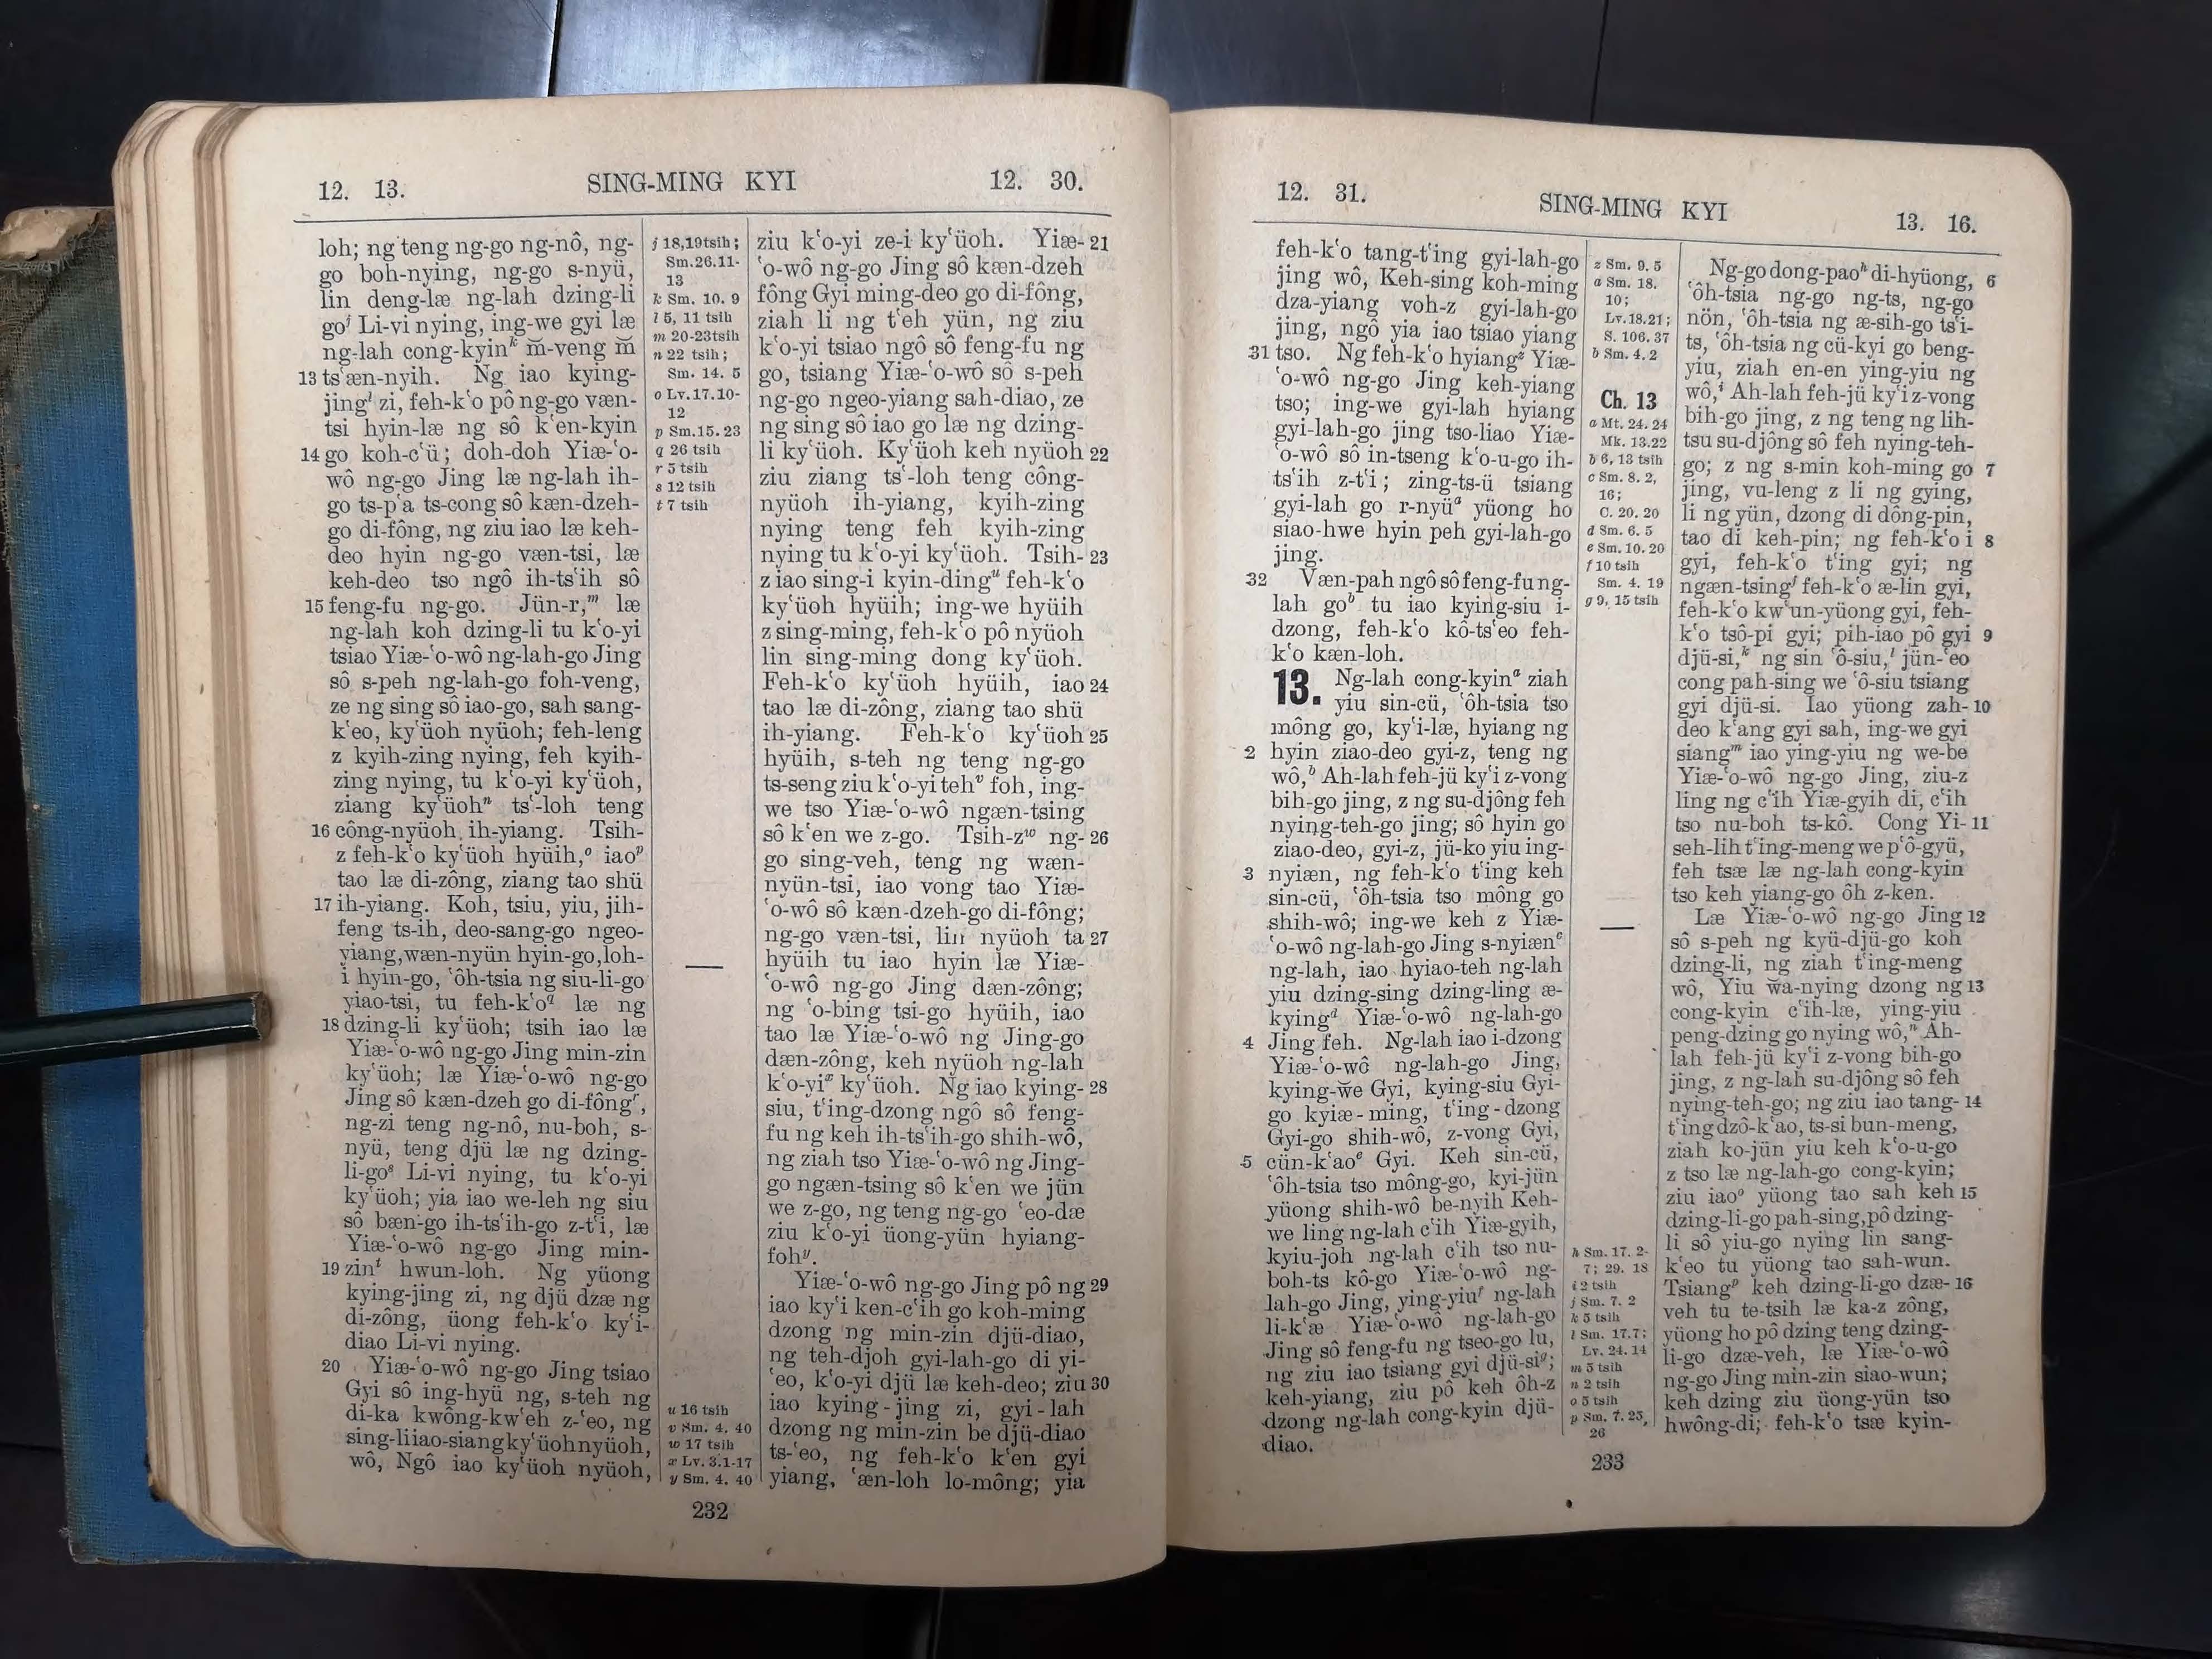 12. 13. SING-MING KYI 12. 30.
loh; ng teng ng-go ng-nô, ng-
go boh-nying, ng-go s-nyü,
lin deng-læ ng-lah dzing-li
goʲ Li-vi nying, ing-we gyi læ
ng-lah cong-kyinᵏ m̆-veng m̆
13 ts‘æn-nyih. Ng iao kying-
jingˡ zi, feh-k‘o pô ng-go væn-
tsi hyin-læ ng sô k‘en-kyin
14 go koh-c‘ü; doh-doh Yiæ-‘o-
wô ng-go Jing læ ng-lah ih-
go ts-p‘a ts-cong sô kæn-dzeh-
go di-fông, ng ziu iao læ keh-
deo hyin ng-go væn-tsi, læ
keh-deo tso ngô ih-ts‘ih sô
15 feng-fu ng-go. Jün-r,ᵐ læ
ng-lah koh dzing-li tu k‘o-yi
tsiao Yiæ-‘o-wô ng-lah-go Jing
sô s-peh ng-lah-go foh-veng,
ze ng sing sô iao-go, sah sang-
k‘eo, ky‘üoh nyüoh; feh-leng
z kyih-zing nying, feh kyih-
zing nying, tu k‘o-yi ky‘üoh,
ziang ky‘üohⁿ ts‘-loh teng
16 công-nyüoh, ih-yiang. Tsih-
z feh-k‘o ky‘üoh hyüih,ᵒ iaoᵖ
tao læ di-zông, ziang tao shü
17 ih-yiang. Koh, tsiu, yiu, jih-
feng ts-ih, deo-sang-go ngeo-
yiang, wæn-nyün hyin-go, loh-
i hyin-go, ‘ôh-tsia ng siu-li-go
yiao-tsi, tu feh-k‘o𐞥 læ ng
18 dzing-li ky‘üoh; tsih iao læ
Yiæ-‘o-wô ng-go Jing min-zin
ky‘üoh; læ Yiæ-‘o-wô ng-go
Jing sô kæn-dzeh go di-fôngʳ,
ng-zi teng ng-nô, nu-boh, s-
nyü, teng djü læ ng dzing-
li-goˢ Li-vi nying, tu k‘o-yi
ky‘üoh; yia iao we-leh ng siu
sô bæn-go ih-ts‘ih-go z-t‘i, læ
Yiæ-‘o-wô ng-go Jing min-
19 zinᵗ hwun-loh. Ng yüong
kying-jing zi, ng djü dzæ ng
di-zông, üong feh-k‘o ky‘i-
diao Li-vi nying.
20 Yiæ-‘o-wô ng-go Jing tsiao
Gyi sô ing-hyü ng, s-teh ng
di-ka kwông-kw‘eh z-‘eo, ng
sing-li iao-siang ky‘üoh nyüoh,
wô, Ngô iao ky‘üoh nyüoh,
j 18,19 tsih;
Sm. 26. 11-
13
k Sm. 10. 9
l 5, 11 tsih
m 20-23 tsih
n 22 tsih;
Sm. 14. 5
o Lv. 17. 10-
12
p Sm. 15. 23
q 26 tsih
r 5 tsih
s 12 tsih
t 7 tsih
u 16 tsih
v Sm. 4. 40
w 17 tsih
x Lv. 3. 1-17
y Sm. 4. 40
ziu k‘o-yi ze-i ky‘üoh. Yiæ- 21
‘o-wô ng-go Jing sô kæn-dzeh
fông Gyi ming-deo go di-fông,
ziah li ng t‘eh yün, ng ziu
k‘o-yi tsiao ngô sô feng-fu ng
go, tsiang Yiæ-‘o-wô sô s-peh
ng-go ngeo-yiang sah-diao, ze
ng sing sô iao go læ ng dzing-
li ky‘üoh. Ky‘üoh keh nyüoh 22
ziu ziang ts‘-loh teng công-
nyüoh ih-yiang, kyih-zing
nying teng feh kyih-zing
nying tu k‘o-yi ky‘üoh. Tsih- 23
z iao sing-i kyin-dingᵘ feh-k‘o
ky‘üoh hyüih; ing-we hyüih
z sing-ming, feh-k‘o pô nyüoh
lin sing-ming dong ky‘üoh.
Feh-k‘o ky‘üoh hyüih, iao 24
tao læ di-zông, ziang tao shü
ih-yiang. Feh-k‘o ky‘üoh 25
hyüih, s-teh ng teng ng-go
ts-seng ziu k‘o-yi tehᵛ foh, ing-
we tso Yiæ-‘o-wô ngæn-tsing
sô k‘en we z-go. Tsih-zʷ ng- 26
go sing-veh, teng ng wæn-
nyün-tsi, iao vong tao Yiæ-
‘o-wô sô kæn-dzeh-go di-fông;
ng-go væn-tsi, lin nyüoh ta 27
hyüih tu iao hyin læ Yiæ-
‘o-wô ng-go Jing dæn-zông;
ng ‘o-bing tsi-go hyüih, iao
tao læ Yiæ-‘o-wô ng Jing-go
dæn-zông, keh nyüoh ng-lah
k‘o-yiˣ ky‘üoh. Ng iao kying- 28
siu, t‘ing-dzong ngô sô feng-
fu ng keh ih-ts‘ih-go shih-wô,
ng ziah tso Yiæ-‘o-wô ng Jing-
go ngæn-tsing sô k‘en we jün
we z-go, ng teng ng-go ‘eo-dæ
ziu k‘o-yi üong-yün hyiang-
fohʸ.
Yiæ-‘o-wô ng-go Jing pô ng 29
iao ky‘i ken-c‘ih go koh-ming
dzong ng min-zin djü-diao,
ng teh-djoh gyi-lah-go di yi-
‘eo, k‘o-yi djü læ keh-deo; ziu 30
iao kying-jing zi, gyi-lah
dzong ng min-zin be djü-diao
ts-‘eo, ng feh-k‘o k‘en gyi
yiang, ‘æn-loh lo-mông; yia
232
12. 31. SING-MING KYI 13. 16.
feh-k‘o tang-t‘ing gyi-lah-go
jing wô, Keh-sing koh-ming
dza-yiang voh-z gyi-lah-go
jing, ngô yia iao tsiao yiang
31 tso. Ng feh-k‘o hyiangᶻ Yiæ-
‘o-wô ng-go Jing keh-yiang
tso; ing-we gyi-lah hyiang
gyi-lah-go jing tso-liao Yiæ-
‘o-wô sô in-tseng k‘o-u-go ih-
ts‘ih z-t‘i; zing-ts-ü tsiang
gyi-lah go r-nyüᵃ yüong ho
siao-hwe hyin peh gyi-lah-go
jing.
32 Væn-pah ngô sô feng-fu ng-
lah goᵇ tu iao kying-siu i-
dzong, feh-k‘o kô-ts‘eo feh-
k‘o kæn-loh.
13. Ng-lah cong-kyinᵃ ziah
yiu sin-cü, ‘ôh-tsia tso
mông go, ky‘i-læ, hyiang ng
2 hyin ziao-deo gyi-z, teng ng
wô,ᵇ Ah-lah feh-jü ky‘i z-vong
bih-go jing, z ng su-djông feh
nying-teh-go jing; sô hyin go
ziao-deo, gyi-z, jü-ko yiu ing-
3 nyiæn, ng feh-k‘o t‘ing keh
sin-cü, ‘ôh-tsia tso mông go
shih-wô; ing-we keh z Yiæ-
‘o-wô ng-lah-go Jing s-nyiænᶜ
ng-lah, iao hyiao-teh ng-lah
yiu dzing-sing dzing-ling æ-
kyingᵈ Yiæ-‘o-wô ng-lah-go
4 Jing feh. Ng-lah iao i-dzong
Yiæ-‘o-wô ng-lah-go Jing,
kying-w̆e Gyi, kying-siu Gyi-
go kyiæ-ming, t‘ing-dzong
Gyi-go shih-wô, z-vong Gyi,
5 cün-k‘aoᵉ Gyi. Keh sin-cü,
‘ôh-tsia tso mông-go, kyi-jün
yüong shih-wô be-nyih Keh-
we ling ng-lah c‘ih Yiæ-gyih,
kyiu-joh ng-lah c‘ih tso nu-
boh-ts kô-go Yiæ-‘o-wô ng-
lah-go Jing, ying-yiuᶠ ng-lah
li-k‘æ Yiæ-‘o-wô ng-lah-go
Jing sô feng-fu ng tseo-go lu,
ng ziu iao tsiang gyi djü-siᵍ;
keh-yiang, ziu pô keh ôh-z
dzong ng-lah cong-kyin djü-
diao.
z Sm. 9. 5
a Sm. 18.
10;
Lv. 18. 21;
S. 106. 37
b Sm. 4. 2
Ch. 13
a Mt. 24. 24
Mk. 13. 22
b 6, 13 tsih
c Sm. 8. 2,
16;
C. 20. 20
d Sm. 6. 5
e Sm. 10. 20
f 10 tsih
Sm. 4. 19
g 9, 15 tsih
h Sm. 17. 2-
7; 29. 18
i 2 tsih
j Sm. 7. 2
k 5 tsih
l Sm. 17. 7;
Lv. 24. 14
m 5 tsih
n 2 tsih
o 5 tsih
p Sm. 7. 25,
26
Ng-go dong-paoʰ di-hyüong, 6
‘ôh-tsia ng-go ng-ts, ng-go
nön, ‘ôh-tsia ng æ-sih-go ts‘i-
ts, ‘ôh-tsia ng cü-kyi go beng-
yiu, ziah en-en ying-yiu ng
wô,ⁱ Ah-lah feh-jü ky‘i z-vong
bih-go jing, z ng teng ng lih-
tsu su-djông sô feh nying-teh-
go; z ng s-min koh-ming go 7
jing, vu-leng z li ng gying,
li ng yün, dzong di dông-pin,
tao di keh-pin; ng feh-k‘o i 8
gyi, feh-k‘o t‘ing gyi; ng
ngæn-tsingʲ feh-k‘o æ-lin gyi,
feh-k‘o kw‘un-yüong gyi, feh-
k‘o tsô-pi gyi; pih-iao pô gyi 9
djü-si,ᵏ ng sin ‘ô-siu,ˡ jün-‘eo
cong pah-sing we ‘ô-siu tsiang
gyi djü-si. Iao yüong zah- 10
deo k‘ang gyi sah, ing-we gyi
siangᵐ iao ying-yiu ng we-be
Yiæ-‘o-wô ng-go Jing, ziu-z
ling ng c‘ih Yiæ-gyih di, c‘ih
tso nu-boh ts-kô. Cong Yi- 11
seh-lih t‘ing-meng we p‘ô-gyü,
feh tsæ læ ng-lah cong-kyin
tso keh yiang-go ôh z-ken.
Læ Yiæ-‘o-wô ng-go Jing 12
sô s-peh ng kyü-djü-go koh
dzing-li, ng ziah t‘ing-meng
wô, Yiu w̆a-nying dzong ng 13
cong-kyin c‘ih-læ, ying-yiu
peng-dzing go nying wô,ⁿ Ah-
lah feh-jü ky‘i z-vong bih-go
jing, z ng-lah su-djông sô feh
nying-teh-go; ng ziu iao tang- 14
t‘ing dzô-k‘ao, ts-si bun-meng,
ziah ko-jün yiu keh k‘o-u-go
z tso læ ng-lah-go cong-kyin;
ziu iaoᵒ yüong tao sah keh 15
dzing-li-go pah-sing, pô dzing-
li sô yiu-go nying lin sang-
k‘eo tu yüong tao sah-wun.
Tsiangᵖ keh dzing-li-go dzæ- 16
veh tu te-tsih læ ka-z zông,
yüong ho pô dzing teng dzing-
li-go dzæ-veh, læ Yiæ-‘o-wô
ng-go Jing min-zin siao-wun;
keh dzing ziu üong-yün tso
hwông-di; feh-k‘o tsæ kyin-
233